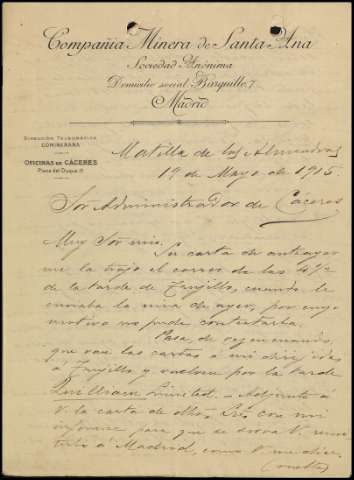 Compañia Minera de Santa Ana
Sociedad Anónima
Domicilio social: Barquillo, 7.
Madrid
DIRECCIÓN TELEGRÁFICA
OFICINAS DE CÁCERES
Plaza del Duque,
Matilla de los Almendros
19 de Mayo de 1915.
Sor Administrador de Cáceres
Muy Sor mio. Su carta de anteayer
me la trajo el correo de las 4½
de la tarde de Trujillo, cuando le
enviaba la mia de ayer, por cuyo
motivo no pude contestarla.
Pasa, de vez en cuando,
que van las cartas á mi dirigidas
á Trujillo y vuelven por la tarde
Adjunto á
V. la carta de dhos. Sres con mi
informe para que se sirva V. remi
tirla á Madrid, como V. me dice.
(vuelta)